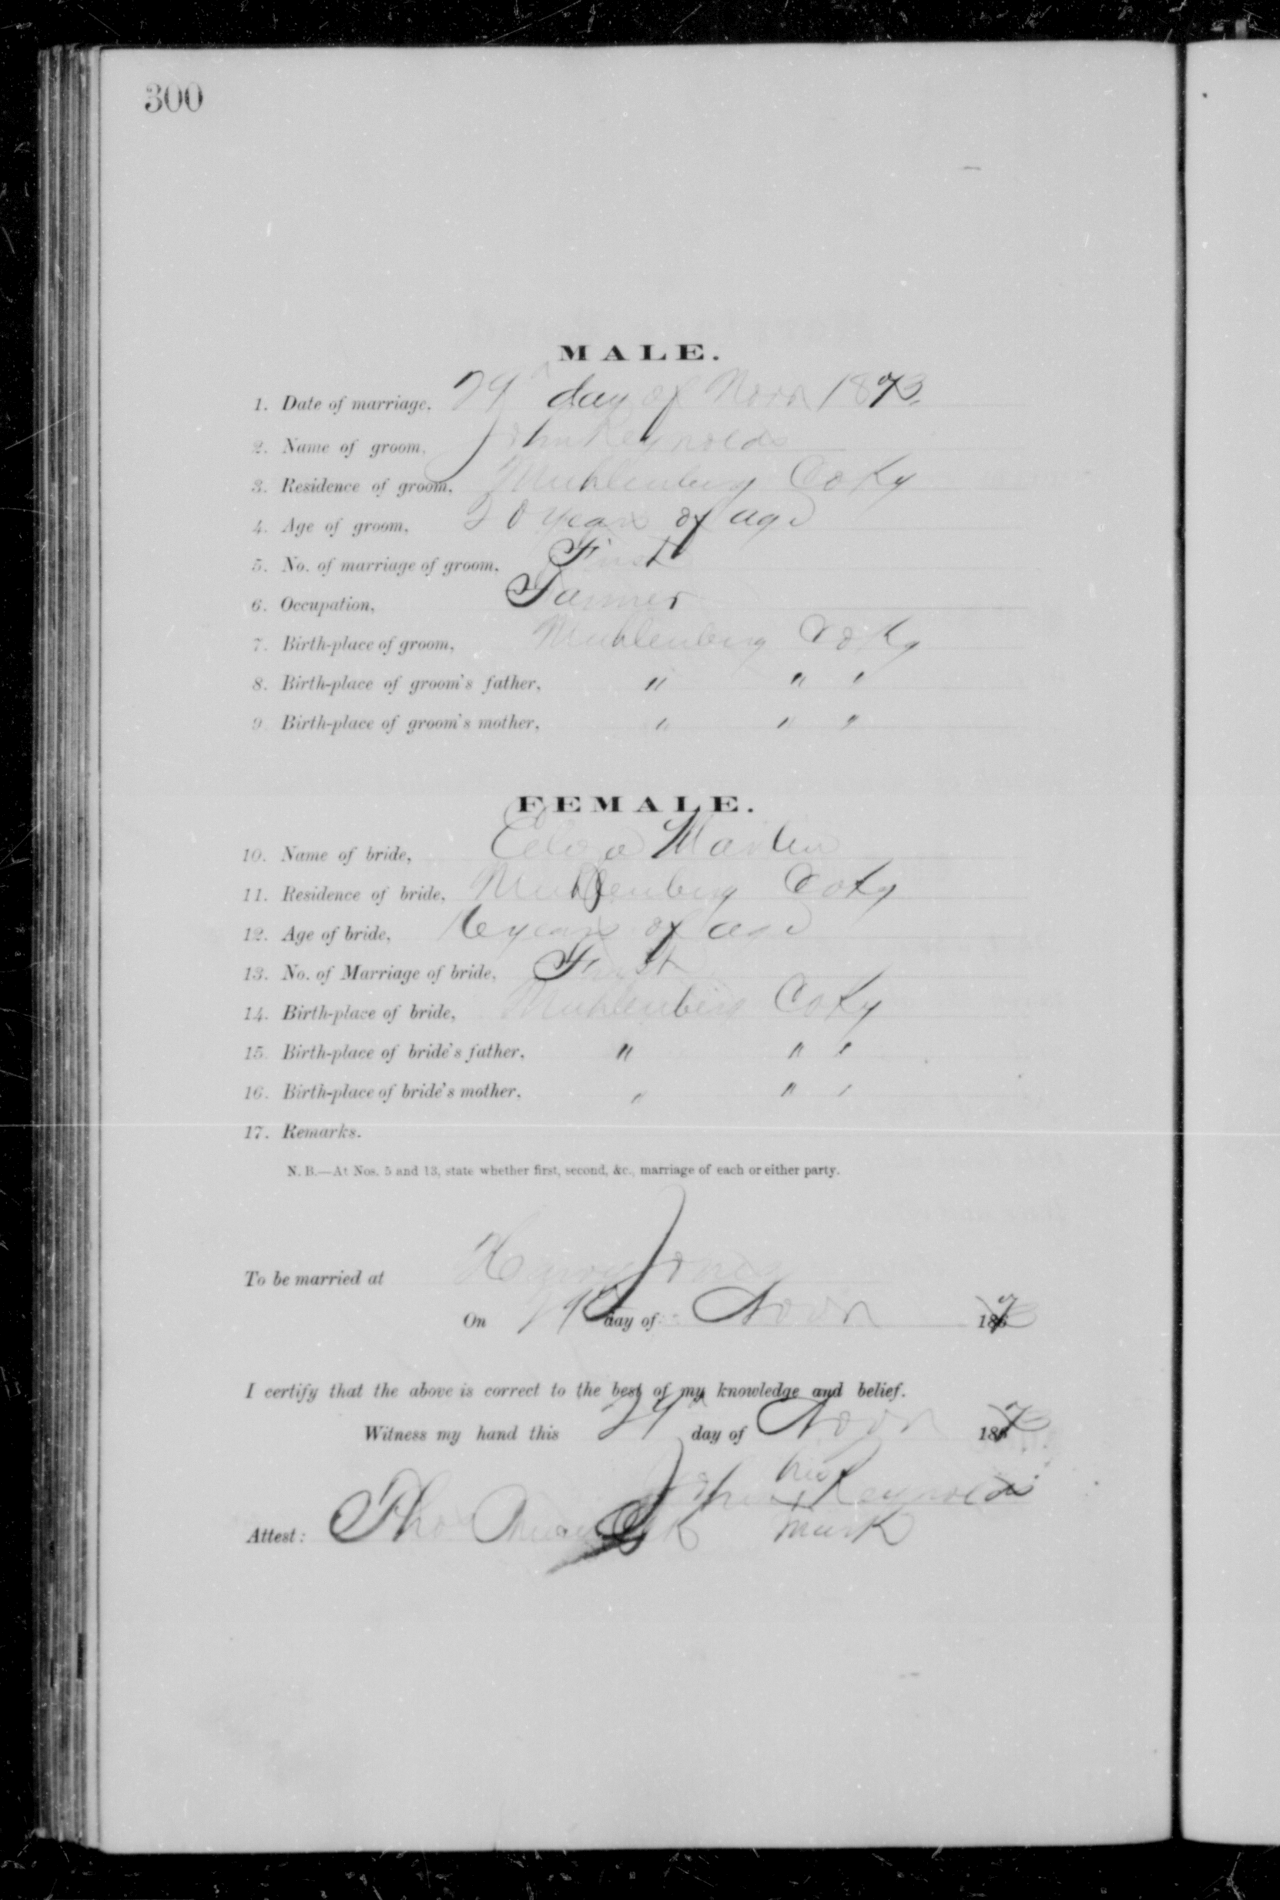 300
MALE.
1. Date of marriage, day of Novr 1873.
2. Name of groom, John Reynolds
3. Residence of groom, Muhlenberg Co Ky
4. Age of groom, 20 years of age
5. No. of marriage of groom, First
6. Occupation, Farmer
7. Birth-place of groom, Muhlenberg Co Ky
8. Birth-place of groom's father, " " "
9. Birth-place of groom's mother, " " "
FEMALE.
10. Name of bride, Martin
11. Residence of bride, Muhlenberg Co Ky
12. Age of bride, 16 years of age
13. No. of Marriage of bride, First
14. Birth-place of bride, Muhlenberg Co Ky
15. Birth-place of bride's father, " " "
16. Birth-place of bride's mother, " " "
17. Remarks.
N. B.—At Nos. 5 and 13, state whether first, second, &c., marriage of each or either party.
To be married at Jones
On day of Novr 1873
I certify that the above is correct to the best of my knowledge and belief.
Witness my hand this day of Novr 1873
his
John x Reynolds
Attest: Tho mark